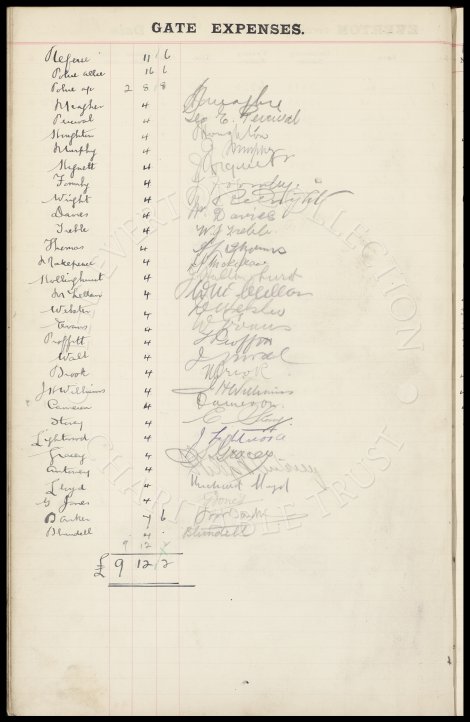 GATE EXPENSES.
Referee 11 6
Police 16 6
Police 2 8 8
Meagher 4
Percival 4 Geo E. Percival
Houghton 4 Houghton
Murphy 4 J Murphy
Hignett 4 Hignett
Formby 4 Formby
Wright 4 Wright
Davies 4 W. Davies
Treble 4 W. J Treble
Thomas 4 Thomas
Makepeace 4 Makepeace
Hollinghurst 4 Hollinghurst
McLellan 4 W McLellan
Webster 4 Webster
Evans 4 W Evans
Proffitt 4 Proffitt
Walt 4 J
Brook 4 Brook
J H Williams 4 J H Williams
Cameron 4 Cameron.
Storey 4 E Storey
Lightwood 4 J Lightwood
Gracey 4 Gracey
4
Lloyd 4 Richard Lloyd
G Jones 4 Jones
7 6
Blundell 4 Blundell
9 12 2
£ 9 12 2
EVERTON COLLECTION CHARITABLE TRUST